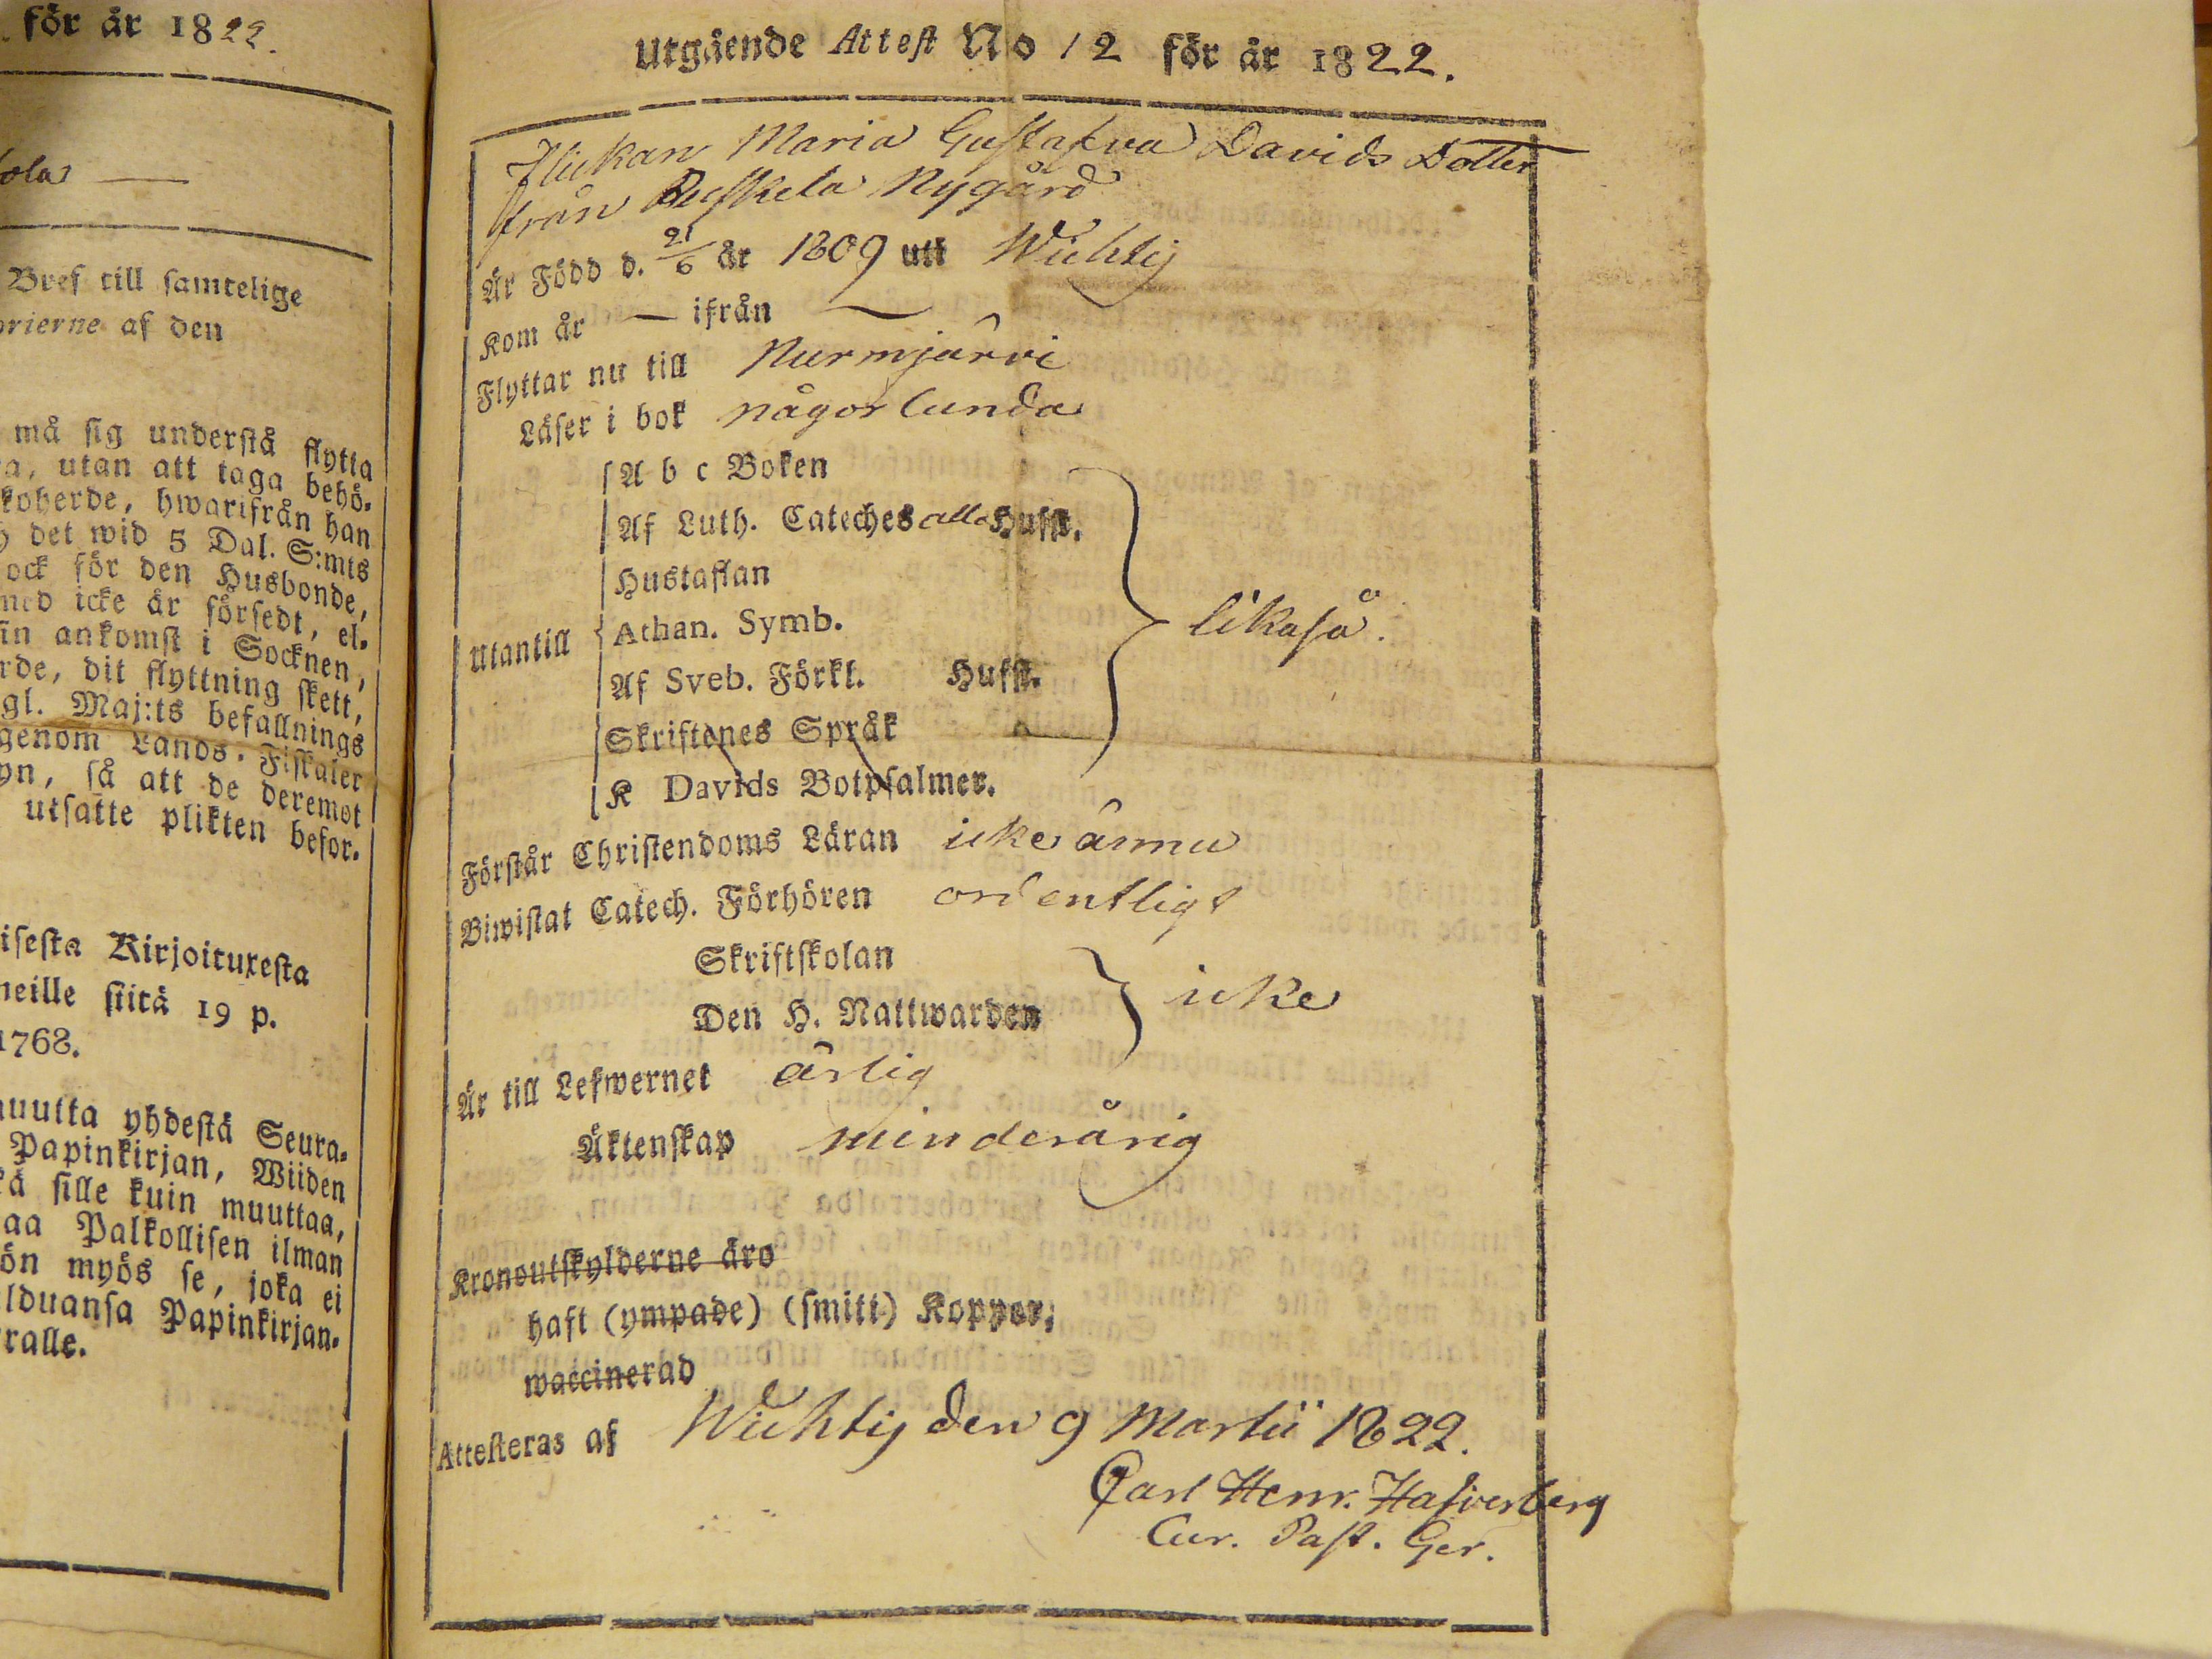 för år 1822.
Bref till samtelige
orierne af den
må sig understå flytta
a, utan att taga behö-
koherde, hwarifrån han
det wid 5 Dal. S:mts
ock för den Husbonde,
med icke är försedt, el-
in ankomst i Socknen,
rde, dit flyttning skett,
gl. Maj:ts befallnings
genom Lands-Fiskaler
yn, så att de deremot
utsatte plikten befor-
isesta Kirjoituxesta
neille siitä 19 p.
1768.
uutta yhdestä Seura-
Papinkirjan, Wiiden
kä sille kuin muuttaa,
aa Palkollisen ilman
ön myös se, joka ei
lduansa Papinkirjan-
ralle.
Utgående Attest No 12 för år 1822.
Flickan Maria Gustafva Davids Dotter
från Nygård
Är Född d. 21/6 år 1809 uti Wichtis
Kom år — ifrån —
Flyttar nu till Nurmjärvi
Läser i bok någorlunda
Utantill
A b c Boken
Af Luth. Cateches alla Hufst.
Hustaflan
Athan. Symb.
Af Sveb. Förkl. Hufst.
Skriftenes Språk
K Davids Botpsalmer.
likaså.
Förstår Christendoms Läran icke ännu
Biwistat Catech. Förhören ordentligt
Skriftskolan
Den H. Nattwarden
icke
Är till Lefwernet ärlig
Äktenskap minderårig
Kronoutskylderne äro
haft (ympade) (smitt) Koppor,
waccinerad
Attesteras af Wichtis den 9 Martii 1822.
Carl Henr. Hafverberg
Cur. Past. Ger.